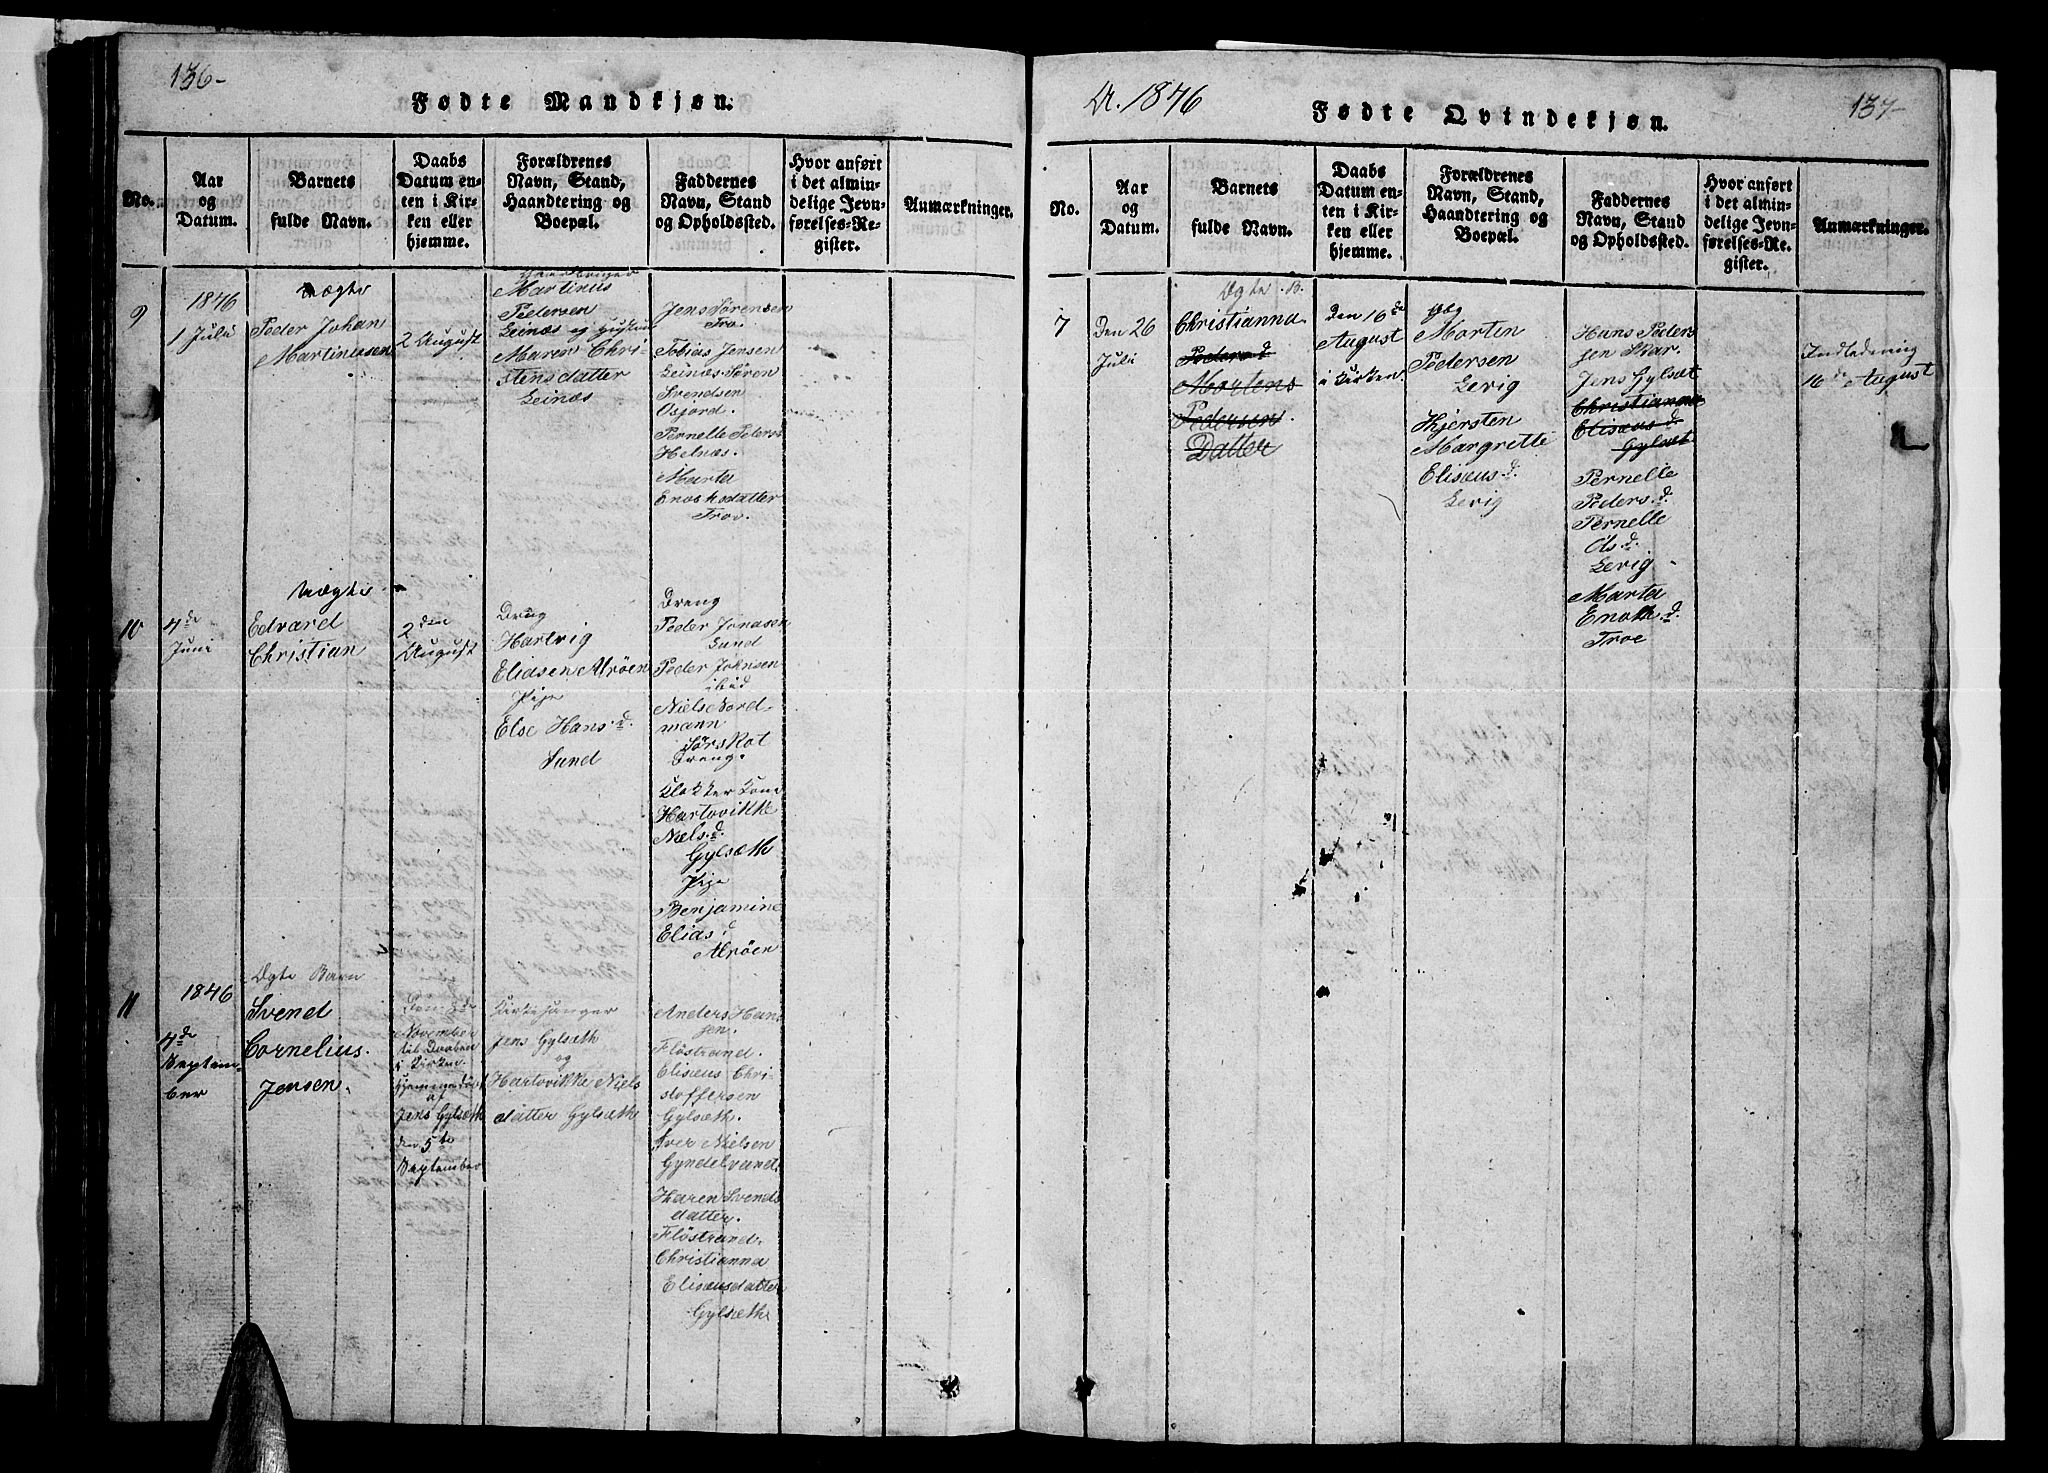 136-
Fødte Mandkjøn.
No.
Aar
og
Datum.
Barnets
fulde Navn.
Daabs
Datum en-
ten i Kir-
ken eller
hjemme.
Forældrenes
Navn, Stand,
Haandtering og
Boepæl.
Faddernes
Navn, Stand
og Opholdssted.
Hvor anført
i det almin-
delige Jevn-
førelses-Re-
gister.
Anmærkninger.
9
1846
1 Juli
Uægte
Peder Johan
Martinussen
2 August
Martinus
Pedersen
Leinæs og
Maren Chri-
stensdatter
Leinæs
Jens Sørensen
Troe.
Tobias Jensen
Leinæs Søren
Svendsen
Osjord.
Pernelle Peders
Helnæs.
Marta
Enochsdatter
Trov.
10
4de
Juni
Uægte
Edvard
Christian
2den
August
Dreng
Hartvig
Eliasen Alrøen
Pige
Else Hans.d.
Sund
Dreng
Peder Jonasen
Sund
Peder Johnsen
ibid
Niels Nord-
mann
Sørskot
Dreng.
Klokker Kone
Hartovikke
Niels.d.
Gylsæth
Pige
Benjamine
Elias.d
Alrøen
11
1846
4de
Septem-
ber
Ægte Barn
Svend
Cornelius.
Jensen.
Den 2de
November
til Daaben
i Kirken
Hjemmedøbt
af
Jens Gylsæth
den 5te
September
Kirkesanger
Jens Gylsæth
og
Hartovikke Niels
datter Gylsæth
Anders Han
sen.
Flöstrand.
Eliseus Chri-
stoffersen
Gylsæth.
Iver Nielsen
Gyndelvand.
Karen Svends
datter.
Flöstrand.
Christianna
Eliseusdatter
Gylsæth
A. 1846
Fødte Qvindekjøn.
137-
No.
Aar
og
Datum.
Barnets
fulde Navn.
Daabs
Datum en-
ten i Kir-
ken eller
hjemme.
Forældrenes
Navn, Stand,
Haandtering og
Boepæl.
Faddernes
Navn, Stand
og Opholdssted.
Hvor anført
i det almin-
delige Jevn-
førelses-Re-
gister.
Anmærkninger.
7
Den 26
Juli
Ægte .B.
Christianna
Peders.d.
Mortens
Pedersen
Datter
den 16de
August
i Kirken.
Morten
Pedersen
Levig
Kjersten
Margrette
Eliseus.d.
Levig
Hans Peder-
sen Skar.
Jens Gylsæt
Christianna
Eliseus.d.
Gylsæt
Pernelle
Peders.d.
Pernelle
Ols.d.
Levig
Marta
Enoch.d.
Troe
Indledning
16de August